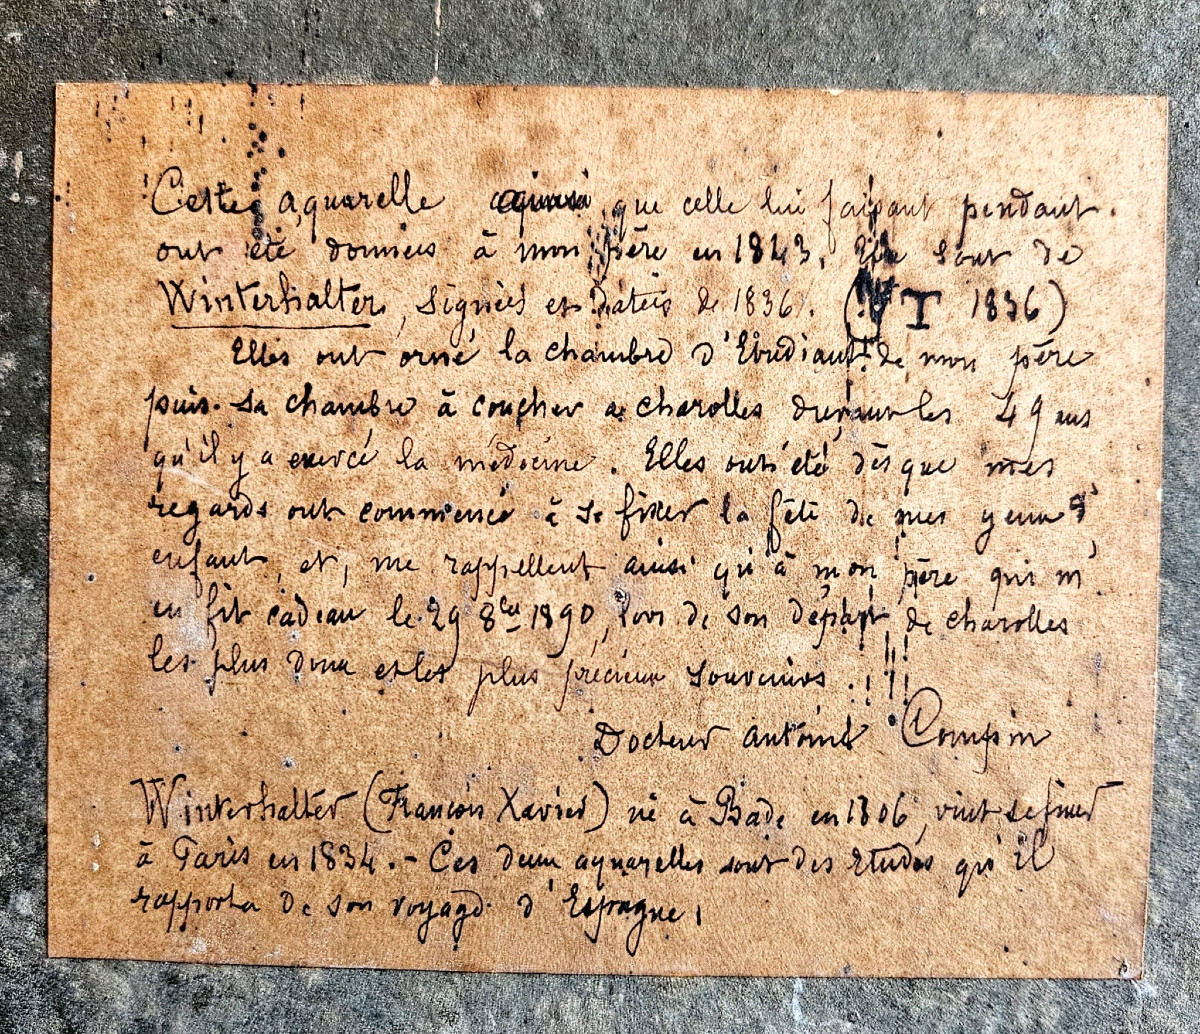 Cette aquarelle ainsi que celle lui faisant pendant
ont été données à mon père en 1843. Elles sont de
Winterhalter, signées et datées de 1836. (W T 1836)
Elles ont orné la chambre d'Etudiant de mon père
puis sa chambre à coucher de charolles durant les 49 ans
qu'il y a exercé la médecine. Elles ont été dès que mes
regards ont commencé à se fixer la fête de mes yeux d'
enfant, et, me rappellent ainsi qu'à mon père qui m'
en fit cadeau le 29 8bre 1890, lors de son départ de charolles
les plus doux et les plus précieux souvenirs.
Docteur Antoine Compin
Winterhalter (François Xavier) né à Bade en 1806, vint se fixer
à Paris en 1834. - Ces deux aquarelles sont des études qu'il
rapporta de son voyage d'Espagne.